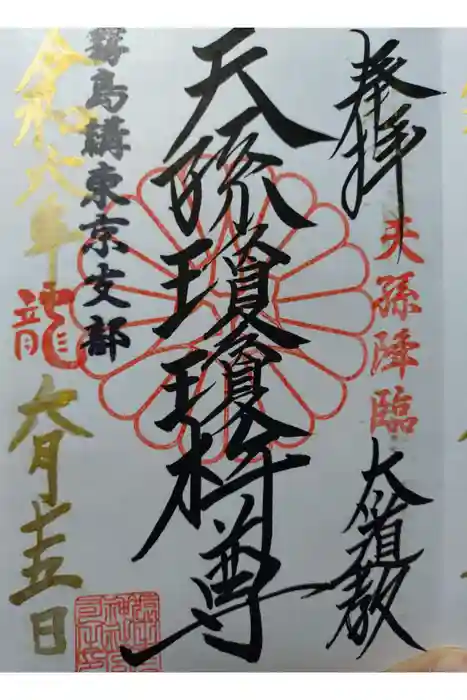 奉拝
天孫降臨
大道教
天孫瓊瓊杵尊
霧島講東京支部
令和六年龍
六月十五日